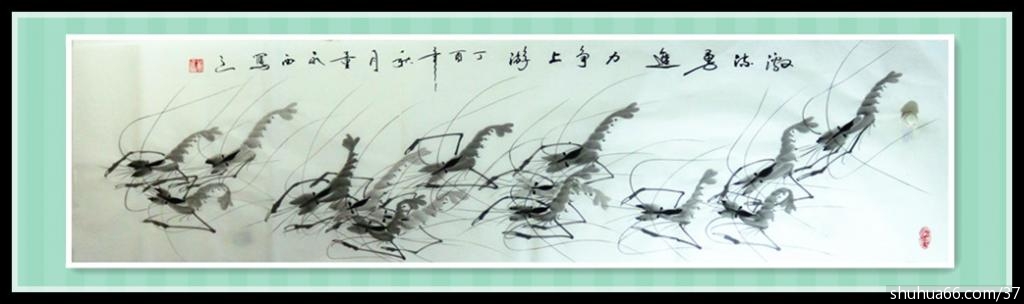 激流勇進 力争上游 丁酉年秋月董永西写
shuhua66.com/37